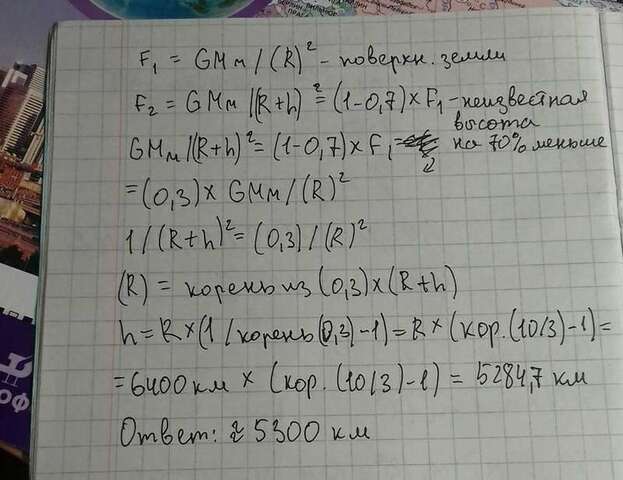 F₁ = GMm/(R)² - поверхн. земли
F₂ = GMm/(R+h)² = (1-0,7)×F₁ - неизвестная
высота
на 70% меньше
GMm/(R+h)² = (1-0,7)×F₁ =
=(0,3)× GMm/(R)²
1/(R+h)² = (0,3)/(R)²
(R) = корень из (0,3)×(R+h)
h=R×(1/корень(0,3)-1)=R×(кор.(10/3)-1)=
=6400 км × (кор.(10/3)-1) = 5284,7 км
Ответ: ≈ 5300 км
ОФ